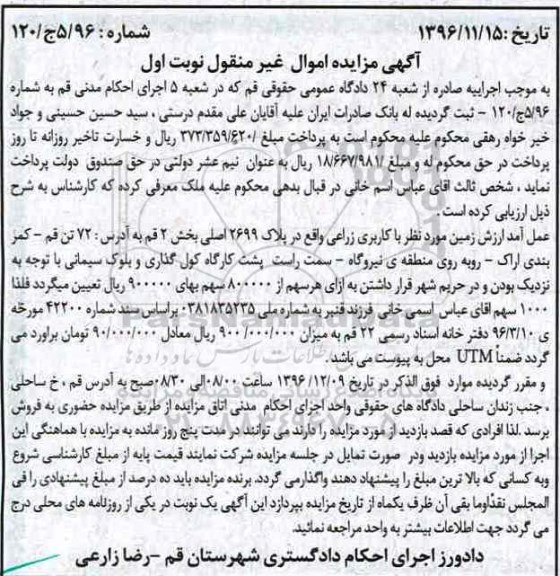 تاریخ :۱۳۹۶/۱۱/۱۵ شماره : ۵/۹۶ج/۱۲۰
آگهی مزایده اموال غیر منقول نوبت اول
به موجب اجراییه صادره از شعبه ۲۴ دادگاه عمومی حقوقی قم که در شعبه ۵ اجرای احکام مدنی قم به شماره
۵/۹۶ج/۱۲۰ – ثبت گردیده له بانک صادرات ایران علیه آقایان علی مقدم درستی ، سید حسین حسینی و جواد
خیر خواه رهقی محکوم علیه محکوم است به پرداخت مبلغ /۳۷۳/۳۵۹/۶۲۰ ریال و خسارت تاخیر روزانه تا روز
پرداخت در حق محکوم له و مبلغ /۱۸/۶۶۷/۹۸۱ ریال به عنوان نیم عشر دولتی در حق صندوق دولت پرداخت
نماید ، شخص ثالث اقای عباس اسم خانی در قبال بدهی محکوم علیه ملک معرفی کرده که کارشناس به شرح
ذیل ارزیابی کرده است .
عمل آمد ارزش زمین مورد نظر با کاربری زراعی واقع در پلاک ۲۶۹۹ اصلی بخش ۲ قم به آدرس : ۷۲ تن قم – کمر
بندی اراک – روبه روی منطقه ی نیروگاه – سمت راست پشت کارگاه کول گذاری و بلوک سیمانی با توجه به
نزدیک بودن و در حریم شهر قرار داشتن به ازای هرسهم از ۸۰۰۰۰۰ سهم بهای ۹۰۰۰۰۰ ریال تعیین میگردد فلذا
۱۰۰۰ سهم اقای عباس اسمی خانی فرزند قنبر به شماره ملی ۰۳۸۱۸۳۵۲۳۵ براساس سند شماره ۴۲۲۰۰ مورخه
ی ۹۶/۳/۱۰ دفتر خانه اسناد رسمی ۲۲ قم به میزان ۹۰۰/۰۰۰/۰۰۰ ریال معادل ۹۰/۰۰۰/۰۰۰ تومان براورد می
گردد ضمناً UTM محل به پیوست می باشد.
و مقرر گردیده موارد فوق الذکر در تاریخ ۱۳۹۶/۱۲/۰۹ ساعت ۰۸/۰۰الی ۰۸/۳۰صبح به آدرس قم ، خ ساحلی
، جنب زندان ساحلی دادگاه های حقوقی واحد اجرای احکام مدنی اتاق مزایده از طریق مزایده حضوری به فروش
برسد .لذا افرادی که قصد بازدید از مورد مزایده را دارند می توانند در مدت پنج روز مانده به مزایده با هماهنگی این
اجرا از مورد مزایده بازدید ودر صورت تمایل در جلسه مزایده شرکت نمایند قیمت پایه از مبلغ کارشناسی شروع
وبه کسانی که بالا ترین مبلغ را پیشنهاد دهند واگذارمی گردد. برنده مزایده باید ده درصد از مبلغ پیشنهادی را فی
المجلس نقداًوما بقی آن ظرف یکماه از تاریخ مزایده بپردازد این آگهی یک نوبت در یکی از روزنامه های محلی درج
می گردد جهت اطلاعات بیشتر به واحد مراجعه نمائید.
دادورز اجرای احکام دادگستری شهرستان قم –رضا زارعی